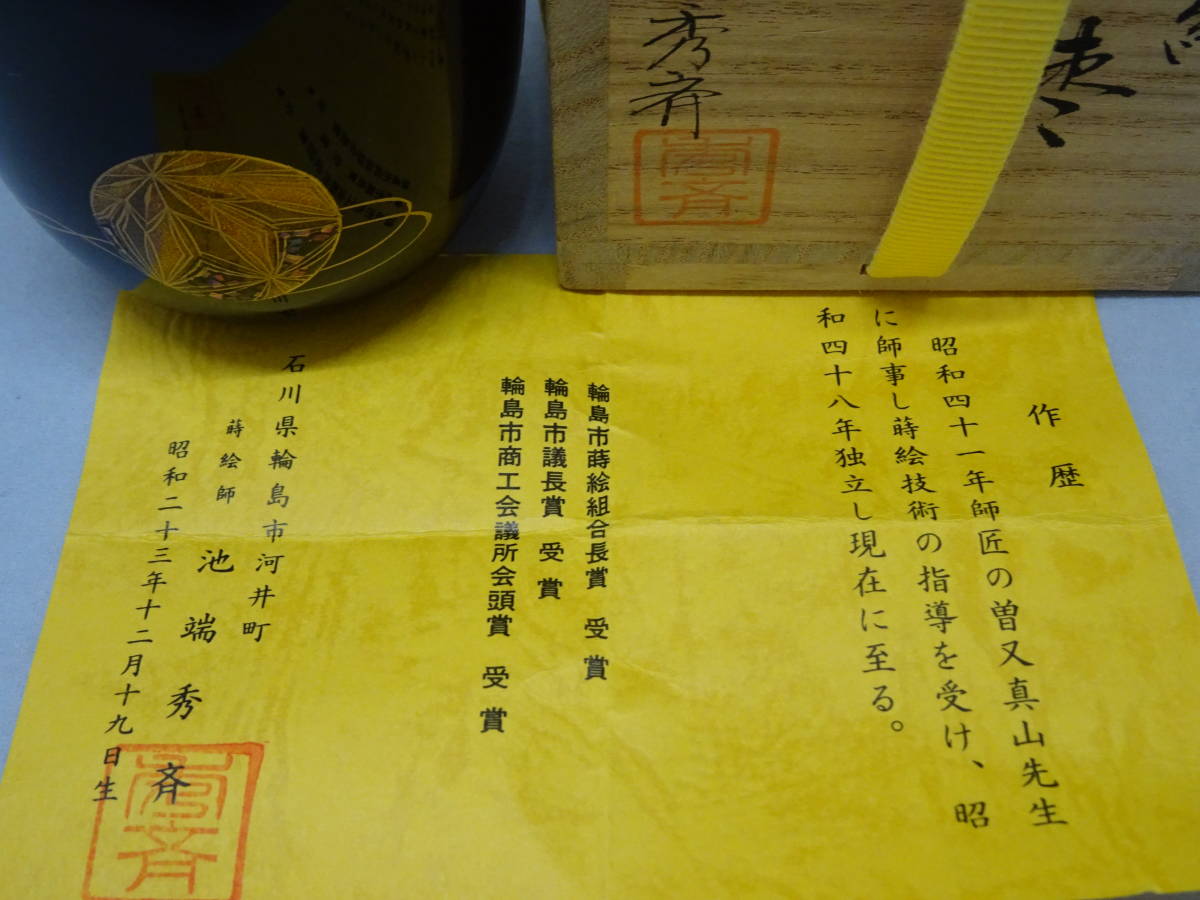 棗
秀斉
作歴
昭和四十一年師匠の曽又真山先生
に師事し蒔絵技術の指導を受け、昭
和四十八年独立し現在に至る。
輪島市蒔絵組合長賞 受賞
輪島市議長賞 受賞
輪島市商工会議所会頭賞 受賞
石川県輪島市河井町
蒔絵師 池端秀斉
昭和二十三年十二月十九日生